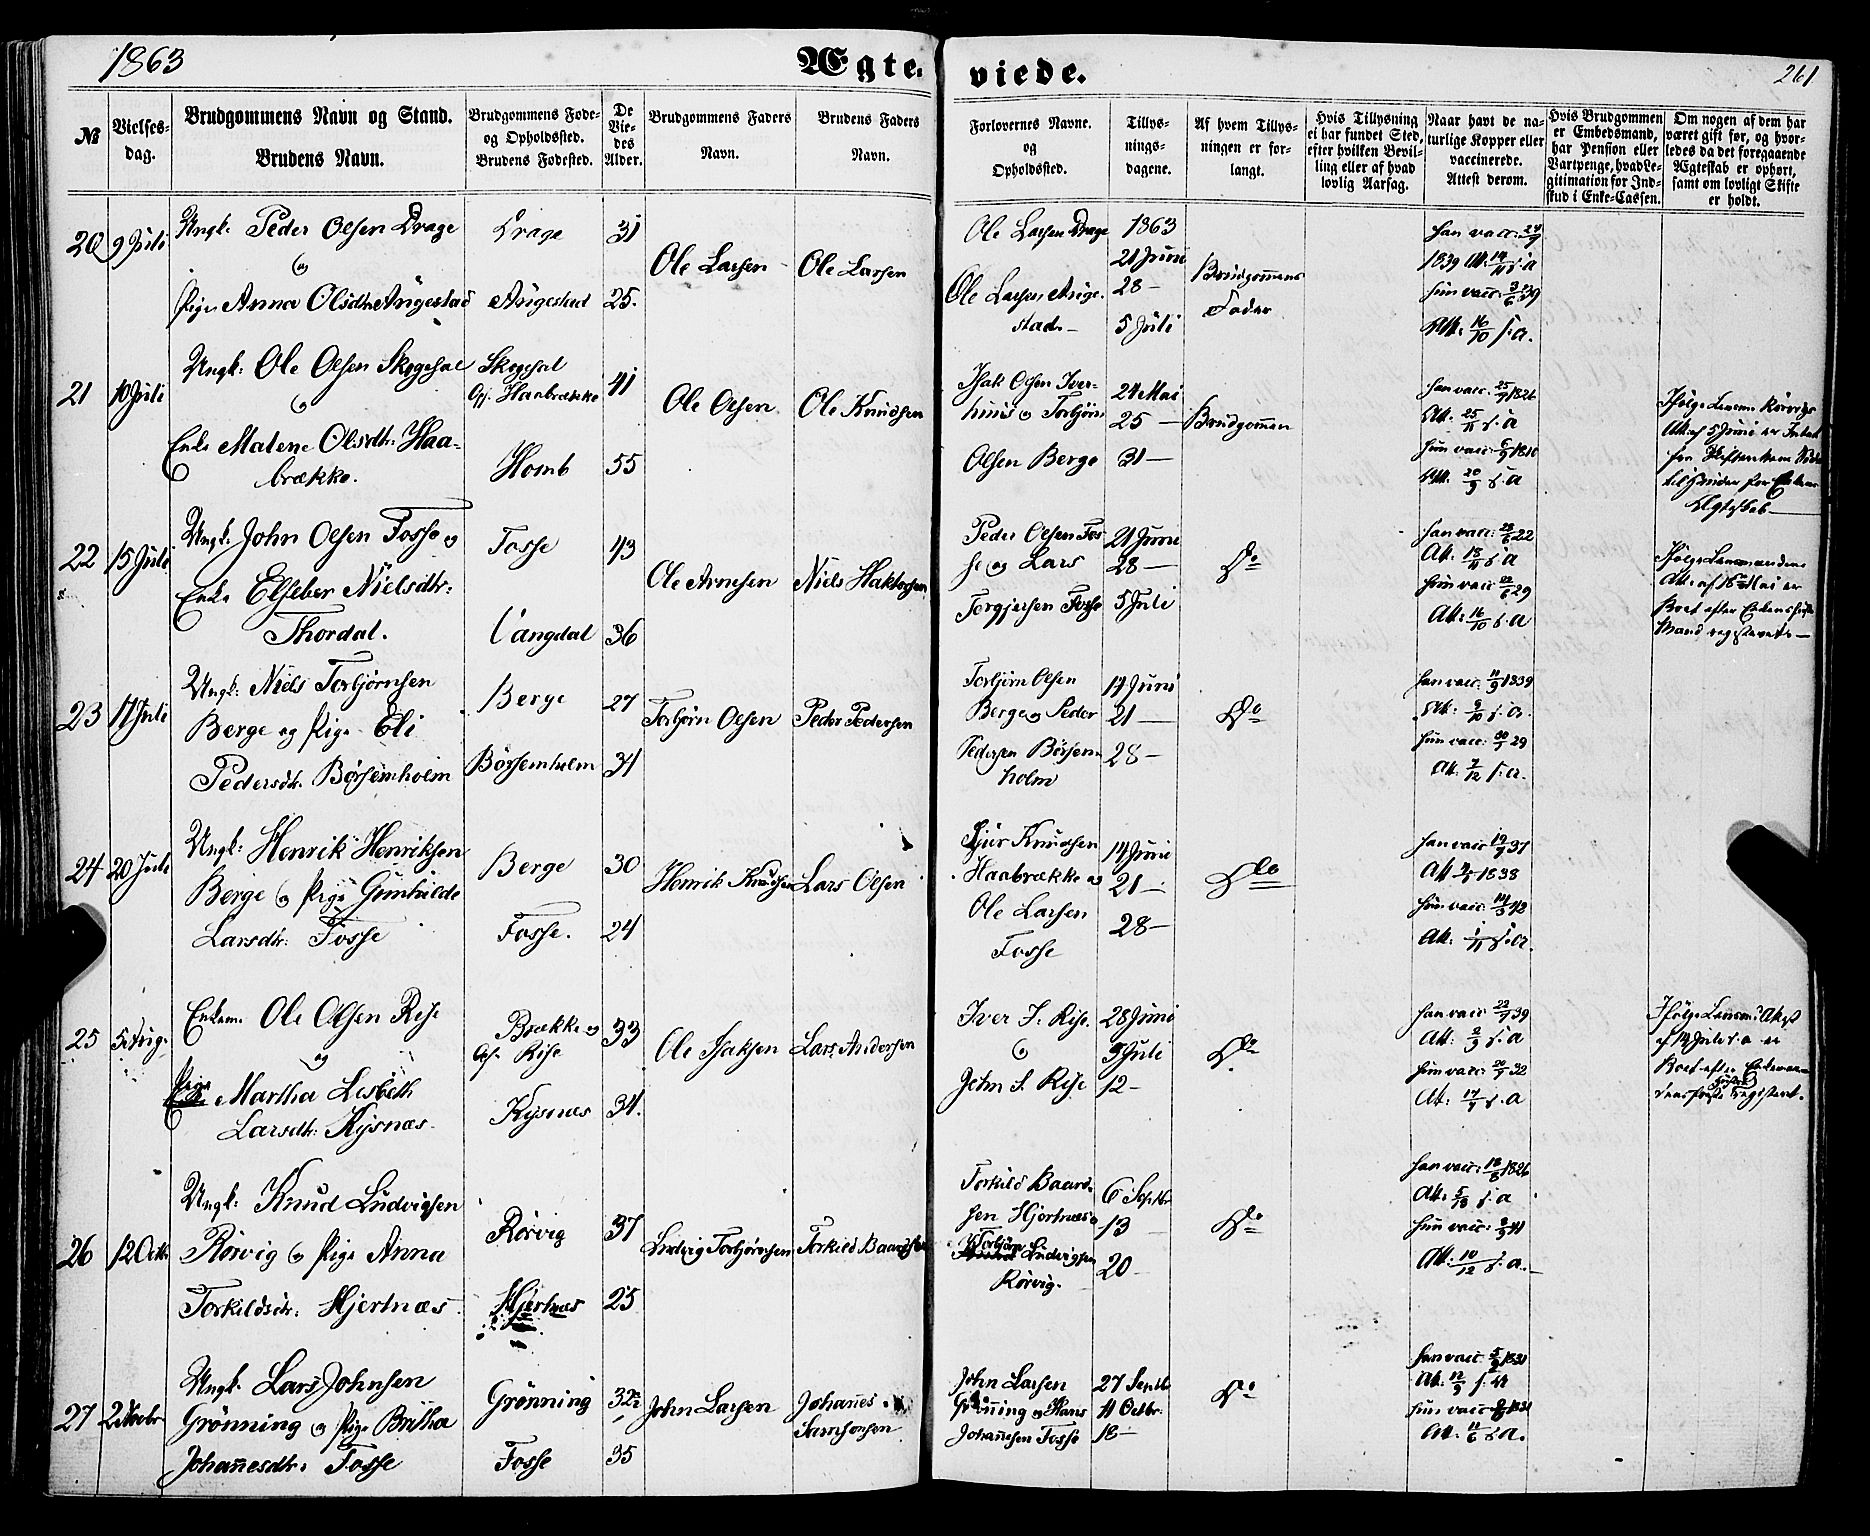 1863
Ægte-
viede.
261
№
Vielses-
dag.
Brudgommens Navn og Stand.
Brudens Navn.
Brudgommens Føde-
og Opholdssted.
Brudens Fødested.
De
Vie-
des
Alder.
Brudgommens Faders
Navn.
Brudens Faders
Navn.
Forlovernes Navne.
og
Opholdssted.
Tillys-
nings-
dagene.
Af hvem Tillys-
ningen er for-
langt.
Hvis Tillysning
ei har fundet Sted,
efter hvilken Bevil-
ling eller af hvad
lovlig Aarsag.
Naar havt de na-
turlige Kopper eller
vaccinerede.
Attest derom.
Hvis Brudgommen
er Embedsmand,
har Pension eller
Vartpenge, hvad Le-
gitimation for Ind-
skud i Enke-Cassen.
Om nogen af dem har
været gift før, og hvor-
ledes da det foregaaende
Ægteskab er ophørt,
samt om lovligt Skifte
er holdt.
20
9 Juli
Ungk: Peder Olsen Drage
og
Pige Anna Olsdtr Angestad
Drage
Angestad
31
25.
Ole Larsen
Ole Larsen
Ole Larsen Drage
Ole Larsen Ange-
stad
1863
21 Juni
28 —
5 Juli
Brudgommens
Fader
Han vacc: 24/7
1839 Att: 14/11 s. a
Hun vacc: 3/6 39
Att: 16/10 s. a.
21
10 Juli
Ungk: Ole Olsen Skogsal
og
Enke Malene Olsdtr. Haa-
brække.
Skogsal
Op. Haabrække
Homb
41
55
Ole Olsen
Ole Knudsen
Isak Olsen Iver-
huus og Torbjørn
Olsen Berge
24 Mai
25 —
31 —
Brudgommen
Han vacc: 25/7 1826
Att: 25/11 s. a
Hun vacc: 1810
Att: 20/9 s. a
Ifølge Lensm. Rørvigs
Att. af 5 Juni er Intet
til Hinder for Enkens
Ægteskab —
22
15 Juli
Ungk: John Olsen Fosse og
Enke Elseber Nielsdtr:
Thordal.
Fosse
Vangdal
43
36
Ole Arnesen
Niels Haktorsen
Peder Olsen Fos-
se og Lars
Torgjersen Fosse
21 Juni
28 —
5 Juli
Do
Han vacc: 28/6 22
Att: 18/11 s. a
Hun vacc: 22/6 29
Att: 16/10 s. a
Ifølge Lensmandens
Att: af 18 Mai er
Boet efter Enkens første
Mand registeret. —
23
17 Juli
Ungk: Niels Torbjørnsen
Berge og Pige Eli
Pedersdtr. Børsemholm
Berge
Børsemholm
27
34
Torbjørn Olsen
Peder Pedersen
Torbjørn Olsen
Berge og Peder
Pedersen Børsem-
holm
14 Juni
21 —
28 —
Do
Han vacc: 11/9 1839
Att: 9/10 s. a.
Hun vacc: 30/7 29
Att: 7/12 s. a.
24
20 Juli
Ungk: Henrik Henriksen
Berge og Pige Gunhilde
Larsdtr: Fosse
Berge
Fosse.
30
24
Henrik Knudsen
Lars Olsen
Sjur Knudsen
Haabrække og
Ole Larsen
Fosse
14 Juni
21 —
28 —
Do
Han vacc 19/7 37
Att 1838
Hun vacc: 42
Att: 1/11 s. a.
25
5 Aug.
Enkem. Ole Olsen Rise
og
Pige Martha Lisbeth
Larsdtr: Kysnæs.
Brække og
Op. Rise
Kysnæs
33
34.
Ole Isaksen
Lars Andersen
Iver J. Rise.
og
John J. Rise
28 Juni
5 Juli
12 —
Do
Han vacc: 22/7 39
Att: 2/3 s. a
Hun vacc: 20/7 32
Att: 17/7 s. a
Ifølge Lensm: Attest
af 14 Juli s. a er
Boet efter Enkeman-
dens første Hustru registeret.
26
12 Octb
Ungk: Knud Ludvigsen
Rørvig og Pige Anna
Torkildsdtr: Hjertnæs.
Rørvig
Hjertnæs
37
23
Ludvig Torbjørnsen
Torkild Baardsen
Torkild Baard-
sen Hjertnæs og
Torbjørn Ludvigsen
Rørvig.
6 Septbr
13 —
20 —
Do
Han vacc: 18/8 1826
Att: 5/10 s. a
Hun vacc: 41
Att: 10/12 s. a. —
27
2 Novbr
Ungk. Lars Johnsen
Grønning og Pige Britha
Johannesdtr. Fosse
Grønning
Fosse
32½
35
John Larsen
Johannes
Samsonsen
John Larsen
Grønning og Hans
Johannesen Fosse
27 Septb.
11 Octbr.
18 —
Do
Han vacc: 1831
Att: 12/9 s. a
Hun vacc: 1831
Att: 11/6 s. a.